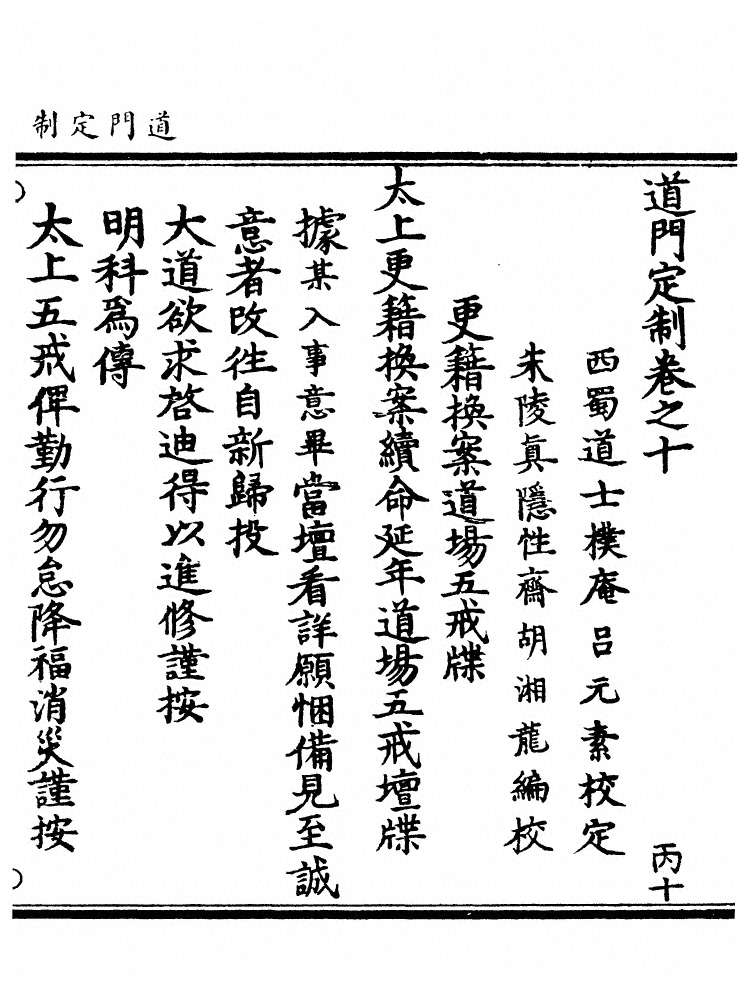 道門定制
道門定制卷之十
丙十
西蜀道士樸庵呂元素校定
朱陵眞隱性齋胡湘龍編校
更籍換案道場五戒牒
太上更籍換案續命延年道場五戒壇牒
據某入事意畢當壇看詳願悃備見至誠
意者改徃自新歸投
大道欲求啓迪得以進修謹按
明科爲傳
太上五戒俾勤行勿怠降福消災謹按